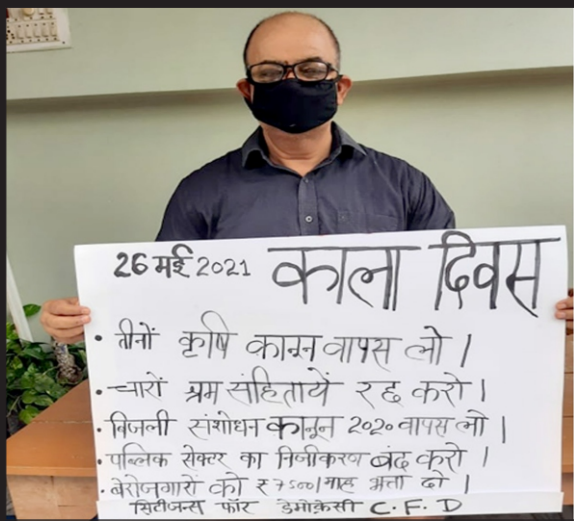 26 मई 2021 काला दिवस
• तीनों कृषि कानून वापस लो |
• चारों श्रम संहितायें रद्द करो |
• बिजली संशोधन कानून 2020 वापस लो |
• पब्लिक सेक्टर का निजीकरण बंद करो |
• बेरोजगारों को ₹7500/माह भत्ता दो |
सिटीजन्स फॉर डेमोक्रेसी C. F. D